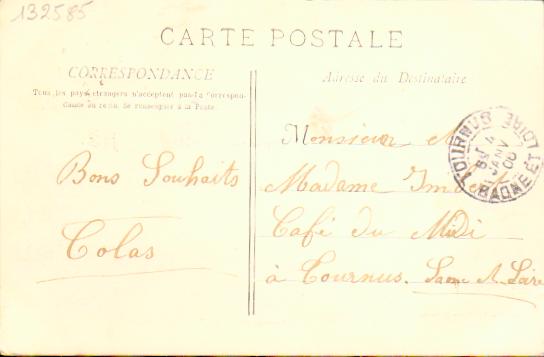 132585
CARTE POSTALE
CORRESPONDANCE
Tous les pays étrangers n'acceptent pas la Correspon-
dance au recto. Se renseigner à la Poste
Adresse du Destinataire
Bons Souhaits
Colas
Monsieur
Madame
Café du Midi
à Tournus. Saone & Loire
TOURNUS
SAONE ET LOIRE
JANV